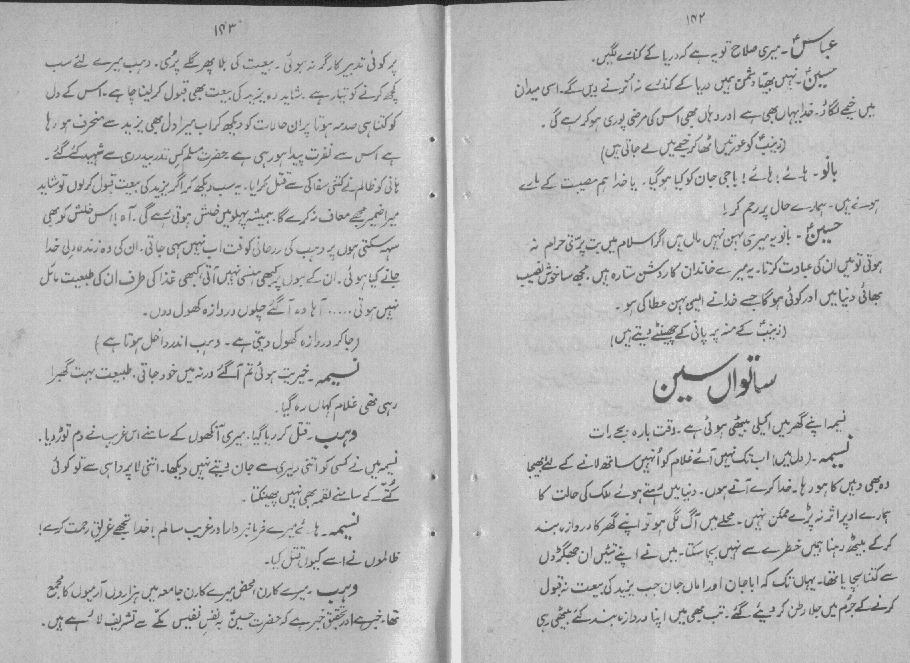 ۱۴۲
عباسؑ ۔ میری صلاح تو یہ ہے کہ دریا کے کنارے لگیں۔
حسینؑ ۔ نہیں بھیّا دشمن ہمیں دریا کے کنارے نہ اُترنے دیں گے۔ اسی میدان
میں خیمے لگاؤ۔ خدا یہاں بھی ہے اور وہاں بھی اس کی مرضی پوری ہو کر رہے گی۔
(زینبؑ کو عورتیں اٹھا کر خیمے میں لے جاتی ہیں)
بانو۔ ہائے! ہائے! باجی جان کو کیا ہو گیا۔ یا خدا ہم مصیبت کے مارے
ہوئے ہیں۔ ہمارے حال پر رحم کر!
حسینؑ ۔ بانو یہ میری بہن نہیں ماں ہیں اگر اسلام میں بت پرستی حرام نہ
ہوتی تو میں ان کی عبادت کرتا۔ یہ میرے خاندان کا روشن ستارہ ہیں۔ مجھ سا خوش نصیب
بھائی دنیا میں اور کوئی ہو گا جسے خدا نے ایسی بہن عطا کی ہو۔
(زینبؑ کے منہ پر پانی کے چھینٹے دیتے ہیں)
ساتواں سین
نسیمہ اپنے گھر میں اکیلی بیٹھی ہوئی ہے۔ وقت بارہ بجے رات
نسیمہ۔ (دل میں) اب تک نہیں آئے غلام کو اُنہیں ساتھ لانے کے لئے بھیجا
وہ بھی وہیں کا ہو رہا۔ خدا کرے آتے ہوں۔ دنیا میں رہتے ہوئے ملک کی حالت کا
ہمارے اوپر اثر نہ پڑے ممکن نہیں۔ محلے میں آگ لگی ہو تو اپنے گھر کا دروازہ بند
کر کے بیٹھ رہنا ہمیں خطرے سے نہیں بچا سکتا۔ میں نے اپنے تئیں ان جھگڑوں
سے کتنا بچایا تھا۔ یہاں تک کہ ابا جان اور اماں جان جب یزید کی بیعت نہ قبول
کرنے کے جُرم میں جلا وطن کر دیئے گئے۔ تب بھی میں اپنا دروازہ بند کئے بیٹھی رہی
۱۴۳
پر کوئی تدبیر کارگر نہ ہوئی۔ بیعت کی بلا پھر گلے پڑی۔ وہب میرے لئے سب
کچھ کرنے کو تیار ہے۔ شاید وہ یزید کی بیعت بھی قبول کر لینا چاہے۔ اس کے دل
کو کتنا ہی صدمہ ہوتا پر ان حالات کو دیکھ کر اب میرا دل بھی یزید سے منحرف ہو رہا
ہے اس سے نفرت پیدا ہو رہی ہے۔ حضرت مسلم کس قدر بیدردی سے شہید کئے گئے۔
ہانی کو ظالم نے کتنی سفاکی سے قتل کرایا۔ یہ سب دیکھ کر اگر یزید کی بیعت قبول کر لوں تو شاید
میرا ضمیر مجھے معاف نہ کرے گا۔ ہمیشہ پہلو میں خلش ہوتی رہے گی۔ آہ! اس خلش کو بھی
سہہ سکتی ہوں پر وہب کی روحانی کوفت اب نہیں سہی جاتی۔ ان کی وہ زندہ دلی خدا
جانے کیا ہوئی۔ ان کے لبوں پر کبھی ہنسی نہیں آتی، کبھی غذا کی طرف ان کی طبیعت مائل
نہیں ہوتی ..... آہا وہ آ گئے چلوں دروازہ کھول دوں۔
(جا کر دروازہ کھول دیتی ہے۔ وہب اندر داخل ہوتا ہے)
نسیمہ۔ خیریت ہوئی تم آ گئے ورنہ میں خود جاتی۔ طبیعت بہت گھبرا
رہی تھی غلام کہاں رہ گیا۔
وہب۔ قتل کر دیا گیا۔ میری آنکھوں کے سامنے اس غریب نے دم توڑ دیا۔
نسیمہ میں نے کسی کو اتنی دلیری سے جان دیتے نہیں دیکھا۔ اتنی لاپروا ہی سے تو کوئی
کُتے کے سامنے لقمہ بھی نہیں پھینکتا۔
نسیمہ۔ ہائے میرے فرمانبردار اور غریب سالم! خدا تجھے غریقِ رحمت کرے!
ظالموں نے اسے کیوں قتل کیا۔
وہب۔ میرے کارن محض میرے کارن جامعہ میں ہزاروں آدمیوں کا مجمع
تھا۔ خبر ہے اور تحقیق خبر ہے کہ حضرت حسینؑ بہ نفسِ نفیس مکّے سے تشریف لا رہے ہیں۔